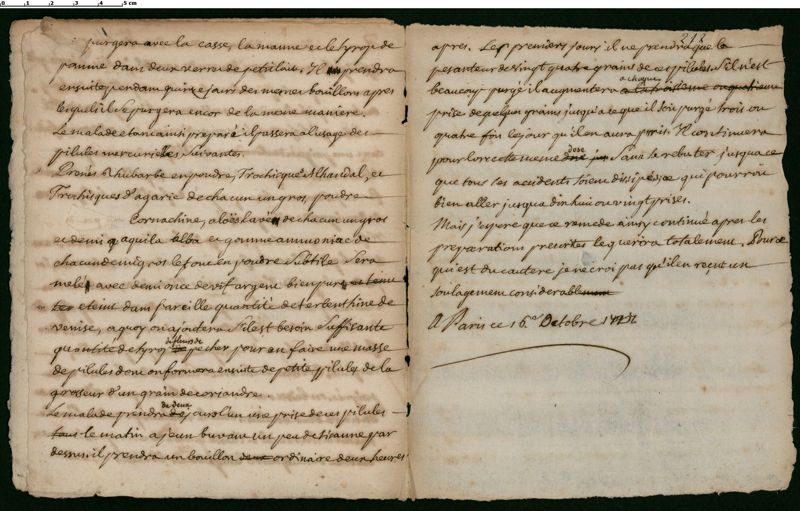 0 1 2 3 4 5 cm
purgera avec la casse, la manne et le syrop de
pomme dans deux verres de petit lait. Il prendra
ensuite pendant quinze jours des memes bouillons apres
lesquels il se purgera encor de la meme maniere.
Le malade etant ainsi preparé il passera a l'usage des
pilules mercurielles suivantes.
Prenes Rhubarbe en poudre, Trochisques Alhandal, et
Trochisques d'agaric de chacun un gros, poudre
Cornachine, aloës lavé de chacun un gros
et demi aquila alba et gomme ammoniac de
chacun demi gros le tout en poudre subtile sera
melé avec demi once de vif argent bien pur et teint
eteint dans pareille quantité de terbenthine de
venise, a quoy on ajoutera s'il est besoin suffisante
quantité de syrop de fleurs de pecher pour en faire une masse
de pilules dont on formera ensuite de petite pilules de la
grosseur d'un grain de coriandre.
Le malade prendra de deux jours l'un une prise de ces pilules
le matin a jeun buvant un peu de tisanne par
dessus. il prendra un bouillon ordinaire deux heures
212
apres. Les premiers jours il ne prendra que la
pesanteur de vingt quatre grains de ces pilules. S'il n'est
beaucoup purgé il augmentera a chaque a la troisieme ou quatrieme
prise de quelques grains jusqu'a ce que il soit purgé trois ou
quatre fois le jour qu'il en aura pris. Il continuera
pour lors cette meme dose sans se rebuter jusqua ce
que tous les accidents soient dissipés ce qui pourroit
bien aller jusqua dix huit ou vingt prises.
Mais j'espere que ce remede ainsy continué apres les
preparations prescrites le guerira totalement. Pour ce
qui est du cautere je ne croi pas qu'il en reçut un
soulagement considerable
A Paris ce 16e Octobre